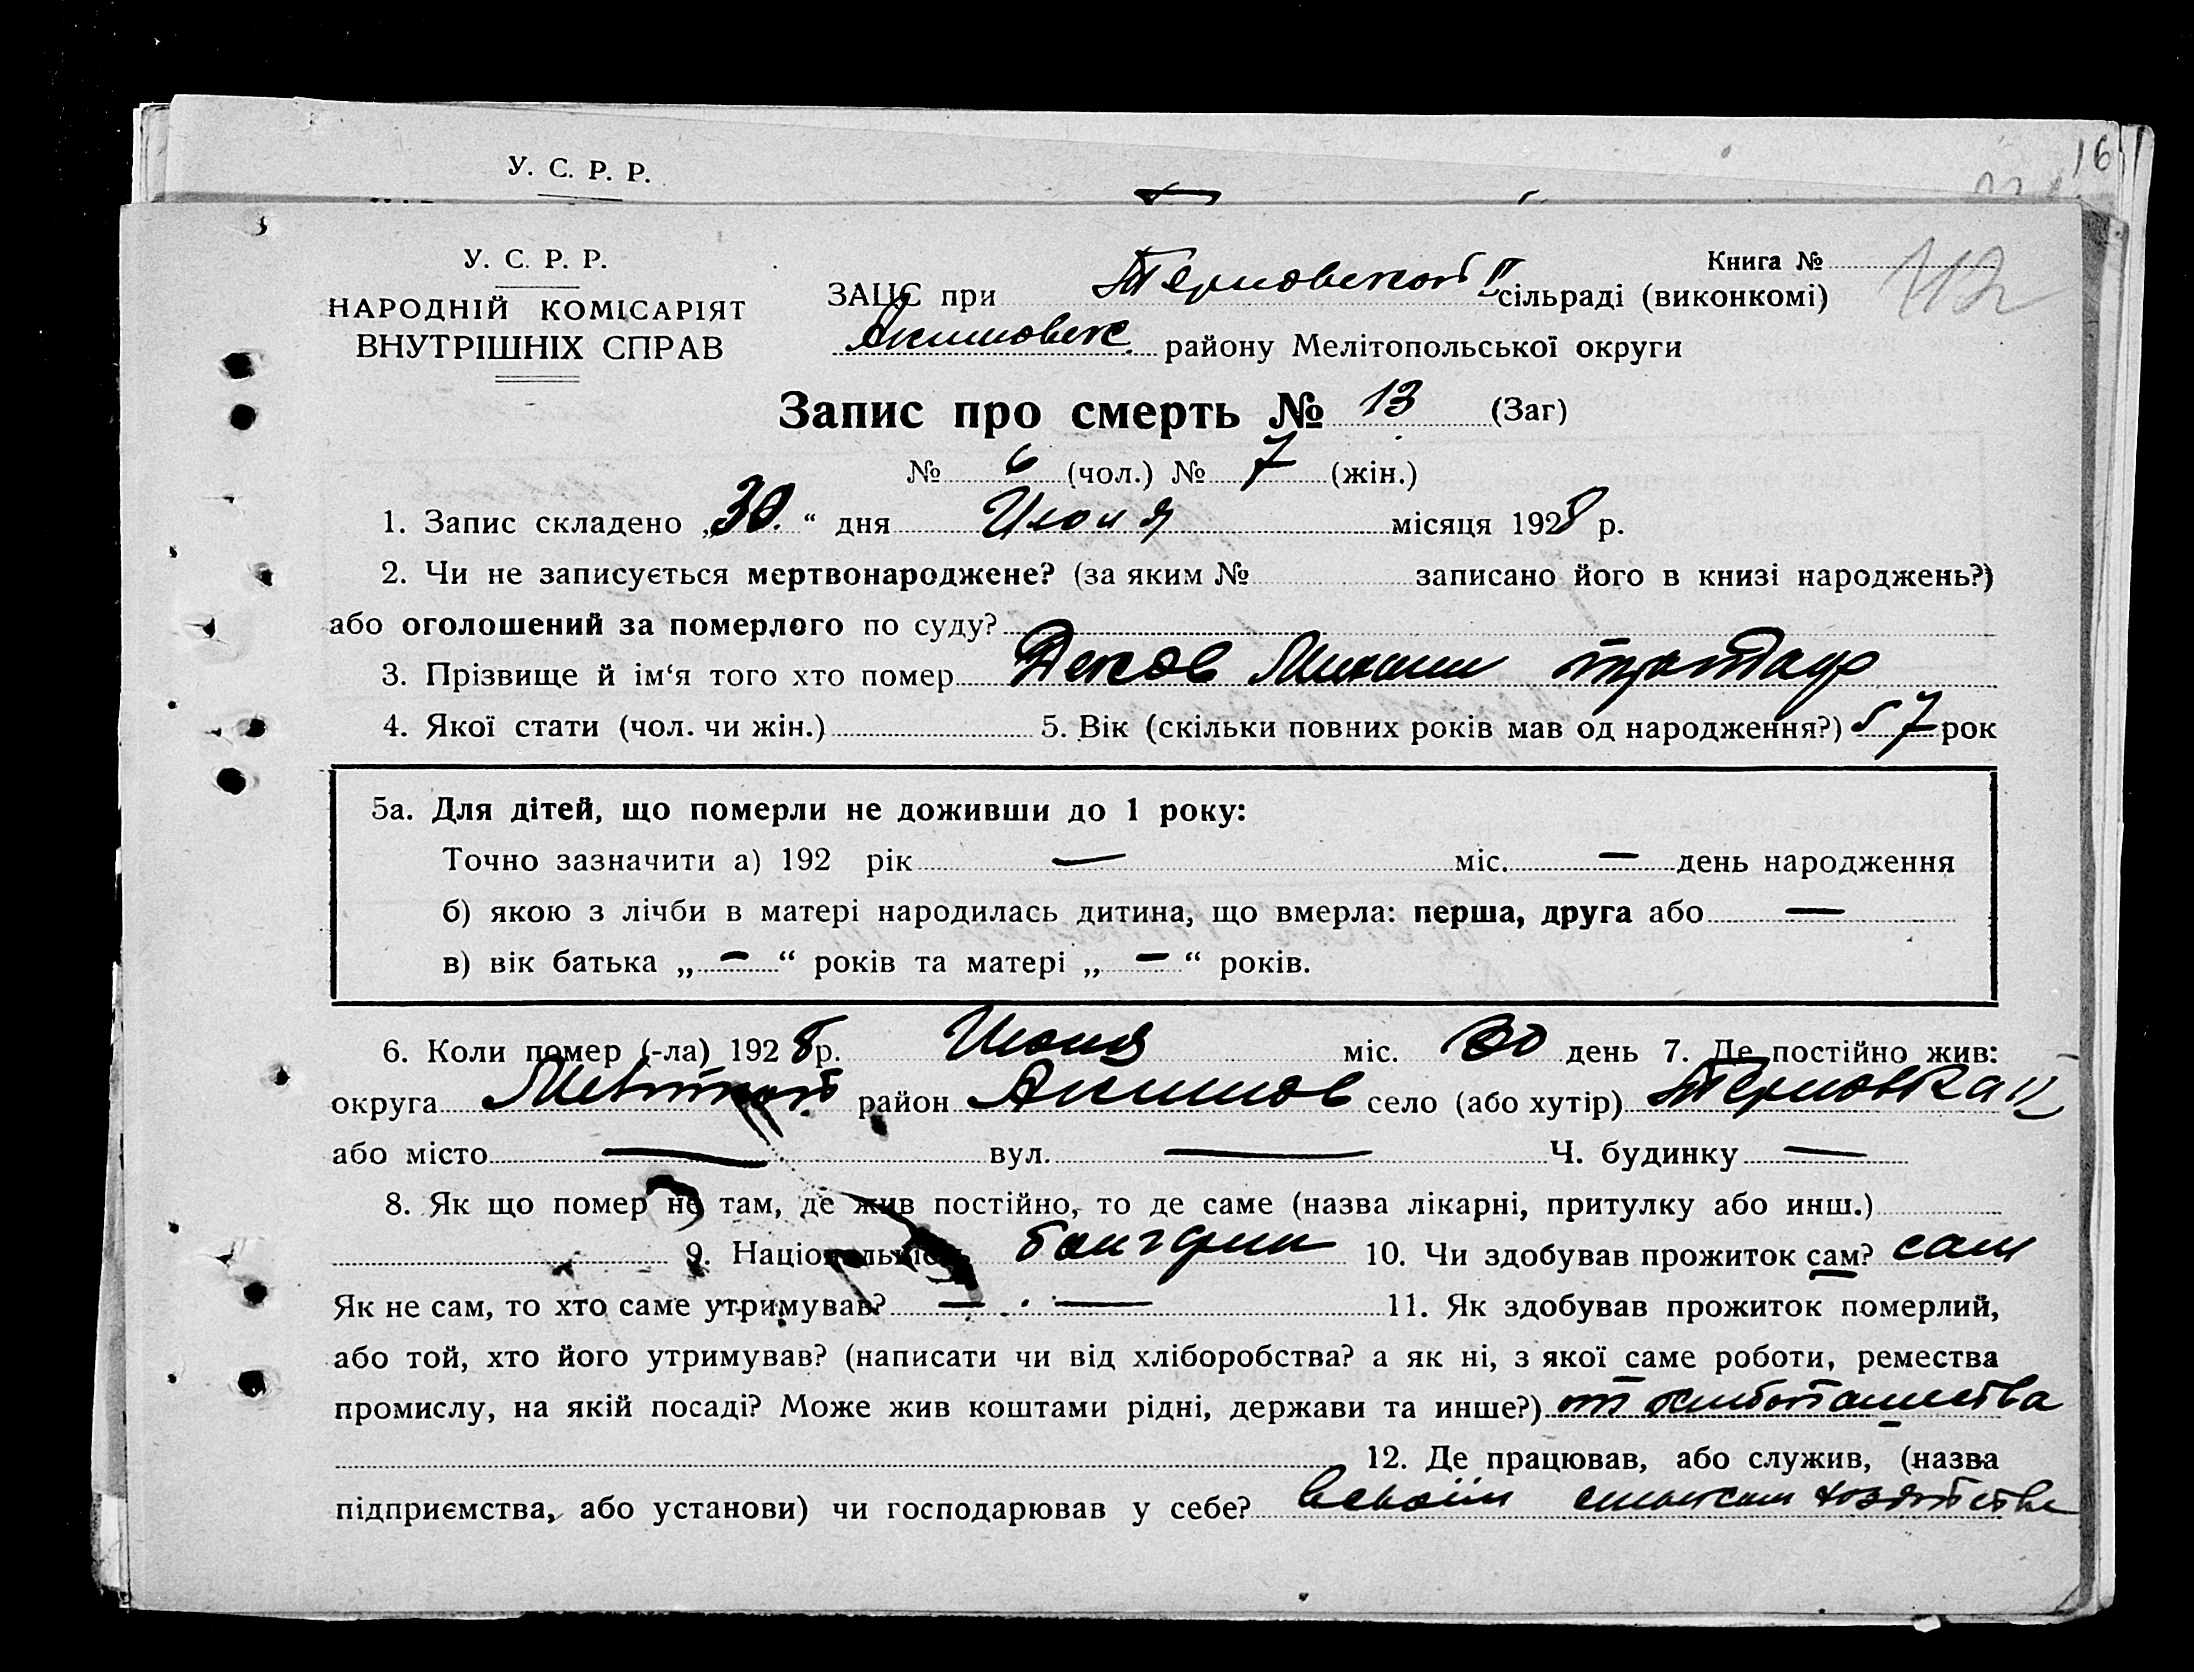 16
У. С. Р. Р.
У. С. Р. Р.
НАРОДНІЙ КОМІСАРІЯТ
ВНУТРІШНІХ СПРАВ
Книга № 112
ЗАЦС при Терновской II сільраді (виконкомі)
Акимовск. району Мелітопольської округи
Запис про смерть № 13 (Заг)
№ 6 (чол.) № 7 (жін.)
1. Запис складено „30." дня Июля місяця 1928 р.
2. Чи не записується мертвонароджене? (за яким № записано його в книзі народжень?)
або оголошений за померлого по суду?
3. Прізвище й ім'я того хто помер Деков Михаил
4. Якої стати (чол. чи жін.) 5. Вік (скільки повних років мав од народження?) 57 рок
5а. Для дітей, що померли не доживши до 1 року:
Точно зазначити а) 192 рік — міс. — день народження
б) якою з лічби в матері народилась дитина, що вмерла: перша, друга або —
в) вік батька „ — “ років та матері „ — “ років.
6. Коли помер (-ла) 1928 р. Июля міс. 30 день 7. Де постійно жив:
округа Мелитоп район Акимов село (або хутір) Терновка II
або місто — вул. — Ч. будинку —
8. Як що помер не там, де жив постійно, то де саме (назва лікарні, притулку або инш.)
9. Національність болгарин 10. Чи здобував прожиток сам? сам
Як не сам, то хто саме утримував? — — 11. Як здобував прожиток померлий,
або той, хто його утримував? (написати чи від хліборобства? а як ні, з якої саме роботи, ремества
промислу, на якій посаді? Може жив коштами рідні, держави та инше?) от хлебопашества
12. Де працював, або служив, (назва
підприємства, або установи) чи господарював у себе? в своём сельском хозяйстве